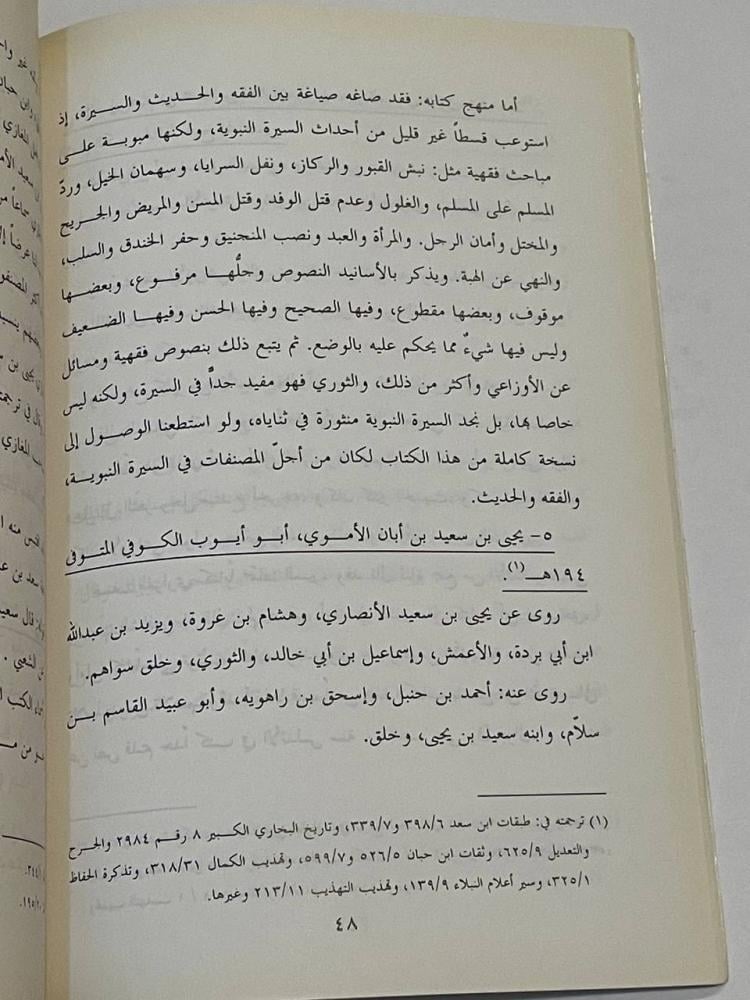 أما منهج كتابه: فقد صاغه صياغة بين الفقه والحـديث والسـيرة، إذ
استوعب قسطاً غير قليل من أحداث السيرة النبوية، ولكنها مبوبـة علـى
مباحث فقهية مثل: نبش القبور والركاز، ونفل السرايا، وسهمان الخيل، وردّ
المسلم على المسلم، والغلول وعدم قتل الوفد وقتل المسن والمريض والجـريح
والمختل وأمان الرجل. والمرأة والعبد ونصب المنجنيق وحفر الخندق والسلب،
والنهي عن الهبة. ويذكر بالأسانيد النصوص وجلُّهـا مرفـوع، وبعضـها
موقوف، وبعضها مقطوع، وفيها الصحيح وفيها الحسن وفيهـا الضـعيف
وليس فيها شيءٌ مما يحكم عليه بالوضع. ثم يتبع ذلك بنصوص فقهية ومسائل
عن الأوزاعي وأكثر من ذلك، والثوري فهو مفيد جداً في السيرة، ولكنه ليس
خاصا بها، بل نجد السيرة النبوية منثورة في ثناياه، ولو استطعنا الوصول إلى
نسخة كاملة من هذا الكتاب لكان من أجلّ المصنفات في السيرة النبويـة،
والفقه والحديث.
٥- يحيى بن سعيد بن أبان الأموي، أبـو أيـوب الكـوفي المتـوفى
١٩٤هـ(١).
روى عن يحيى بن سعيد الأنصاري، وهشام بن عروة، ويزيد بن عبدالله
ابن أبي بردة، والأعمش، وإسماعيل بن أبي خالد، والثوري، وخلق سواهم.
روى عنه: أحمد بن حنبل، وإسحق بن راهويه، وأبو عبيد القاسم بـن
سلاّم، وابنه سعيد بن يحيى، وخلق.
(١) ترجمته في: طبقات ابن سعد ٣٩٨/٦ و٣٣٩/٧، وتاريخ البخاري الكبير ٨ رقم ٢٩٨٤ والجرح
والتعديل ٦٢٥/٩، وثقات ابن حبان ٥٢٦/٥ و٥٩٩/٧، وتهذيب الكمال ٣١٨/٣١، وتذكرة الحفاظ
٣٢٥/١، وسير أعلام النبلاء ١٣٩/٩، وتهذيب التهذيب ٢١٣/١١ وغيرها.
٤٨